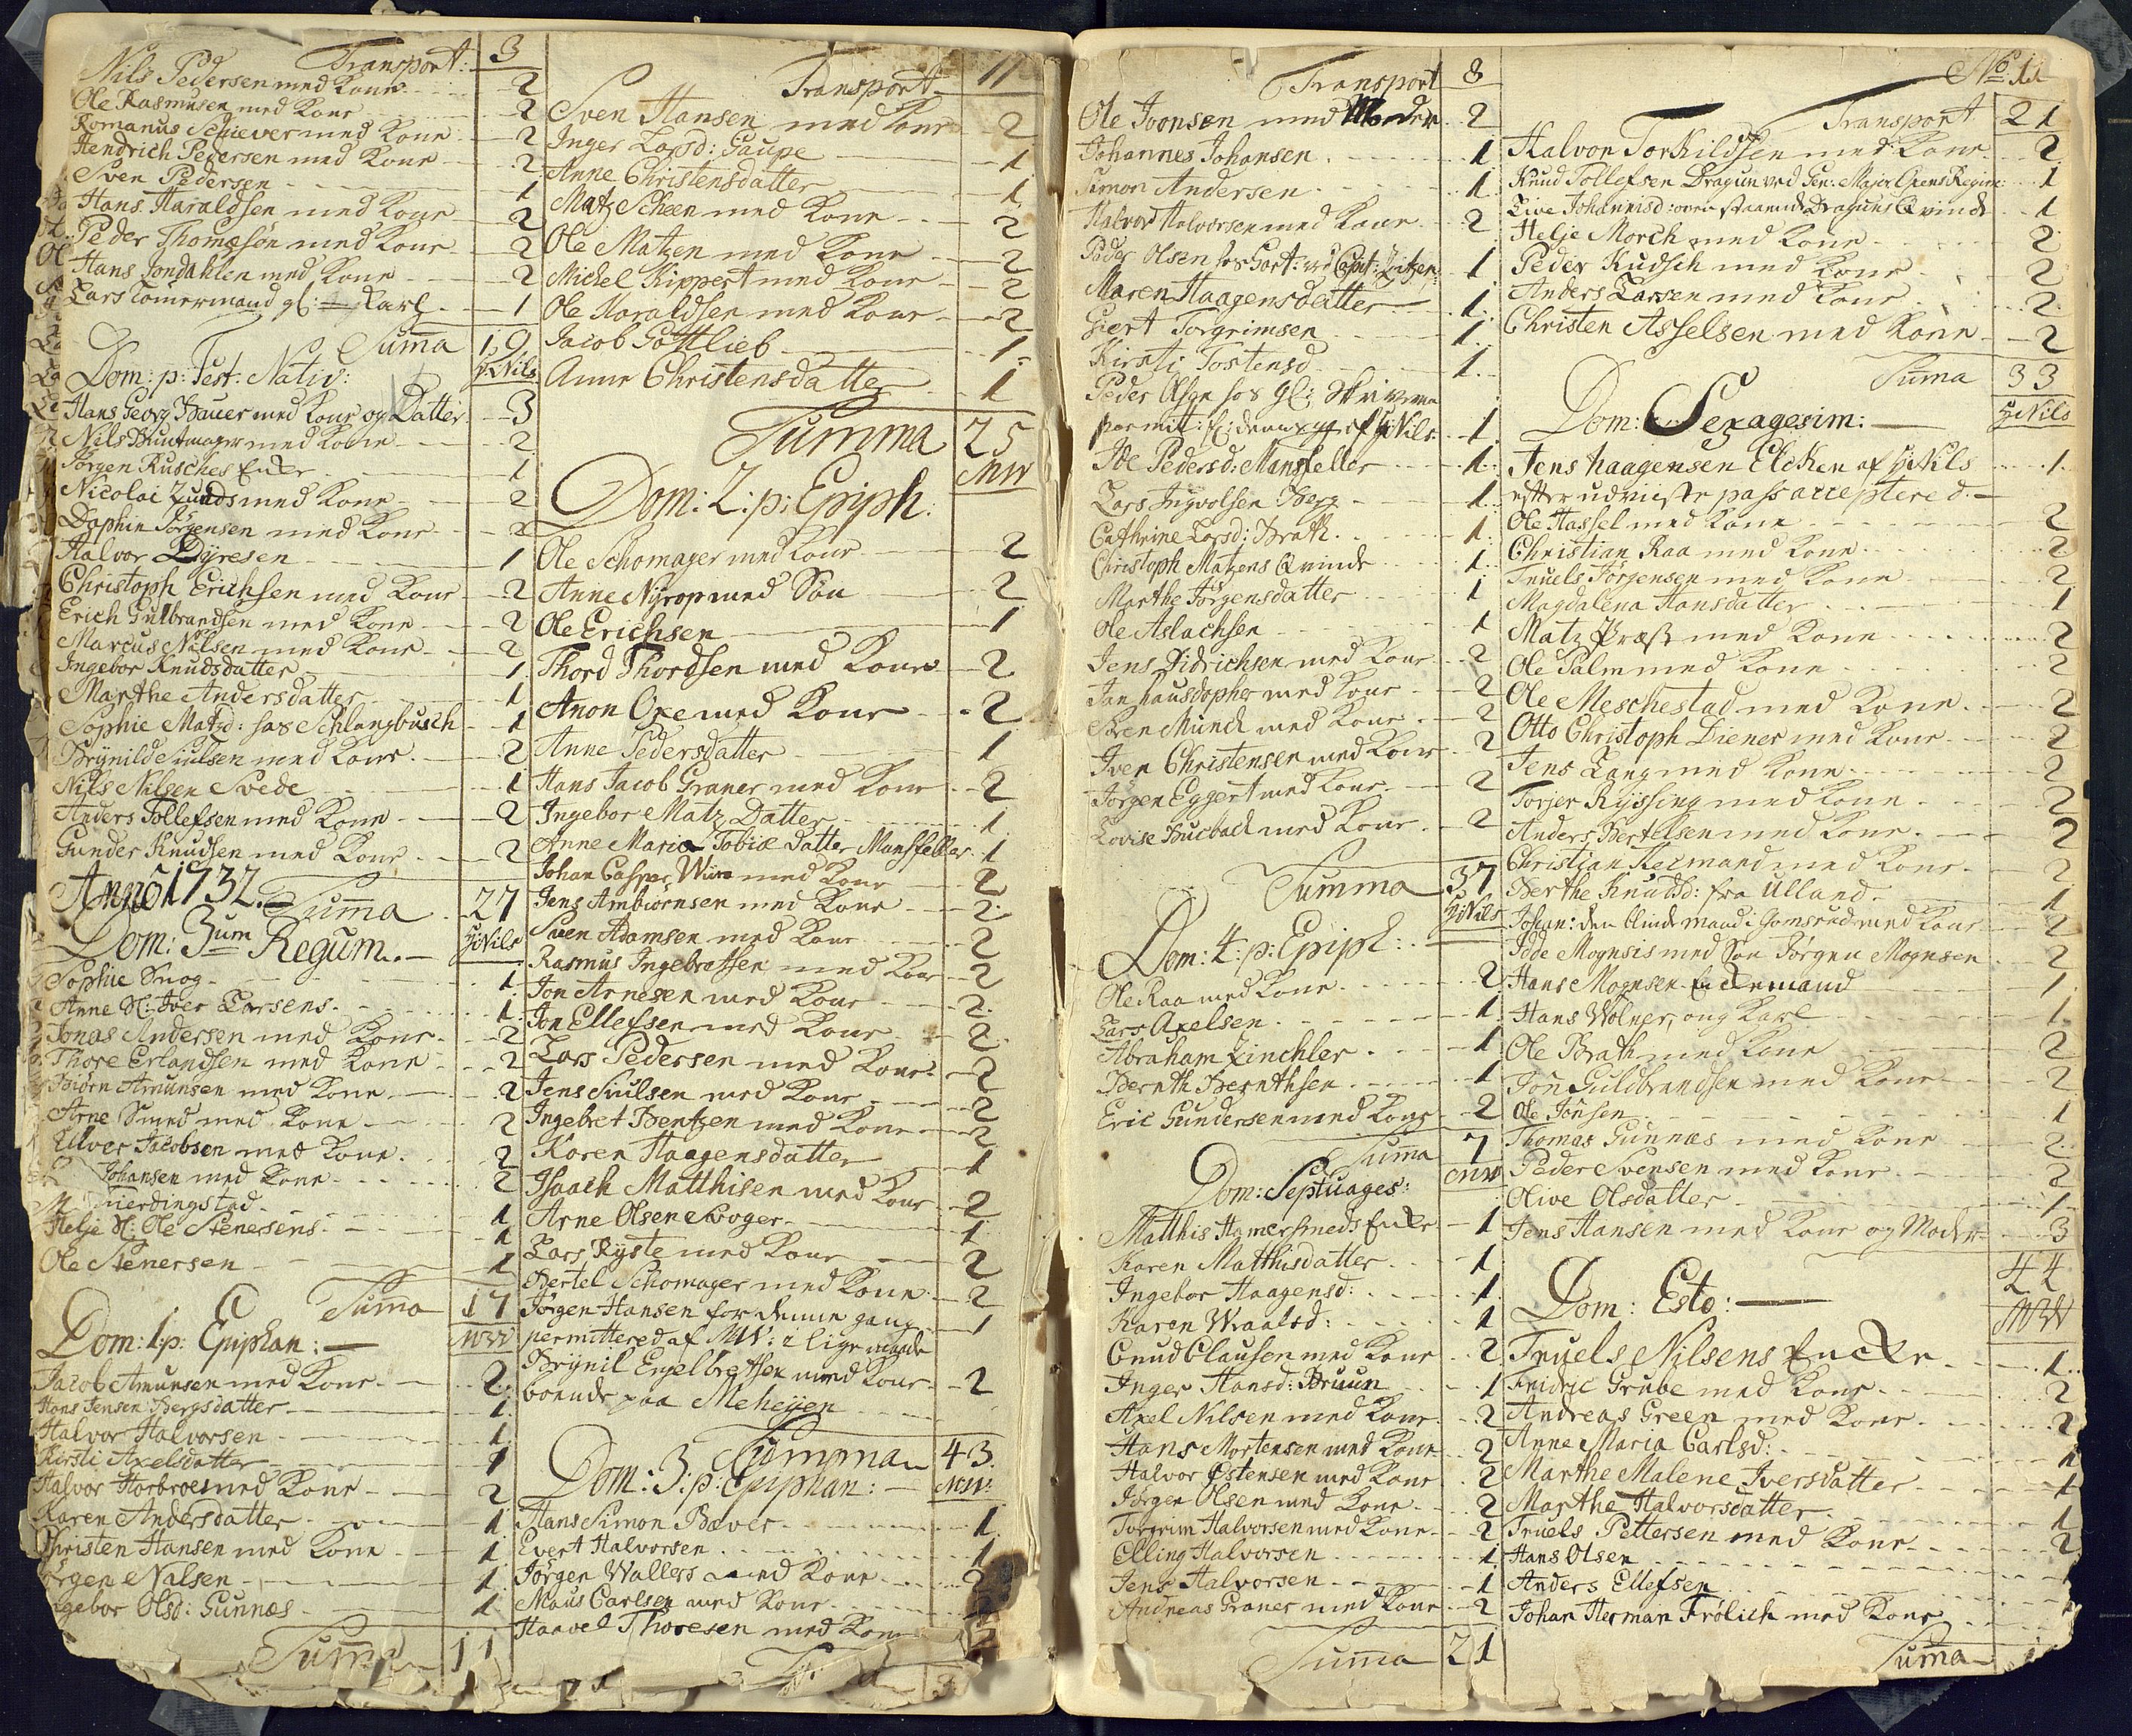 Transport: 3
Nils Pedersen med Kone 2
Ole Rasmusen med Kone 2
Romanus Schiever med Kone 2
Hendrich Pedersen med Kone 2
Sven Pedersen 1
Hans Haraldsen med Kone 2
Peder Thomæsøn med Kone 2
Hans Jondahlen med Kone 2
Lars Tømermand gl: Karl 1
Suma 19
Dom: p: Fest: Nativ: HrNils
Hans Georg Bauer med Kone og Datter 3
Nils Buntmager med Kone 2
Jørgen Rusches Encke 1
Nicolai Lunds med Kone 2
Daphin Jørgensen med Kone 2
Halvor Dyresen 1
Christoph Erichsen med Kone 2
Erich Gulbrandsen med Kone 2
Marcus Nilsen med Kone 2
Ingebor Knudsdatter 1
Marthe Andersdatter 1
Sophie Matzd: hos Schlangbusch 1
Brynild Siulsen med Kone 2
Nils Nilsen Svede 1
Anders Tollefsen med Kone 2
Gunder Knudsen med Kone 2
Anno 1732. Suma 27
Dom: 3um Regum. HrNils
Sophie Snog 1
Anne Sl: Iver Larsens 1
Jonas Andersen med Kone 2
Thore Erlandsen med Kone 2
Biørn Amunsen med Kone 2
Arne Smed med Kone 2
Elver Jacobsen med Kone 2
Johansen med Kone 2
Fierdingstad 1
Helje Sl: Ole Stenersens 1
Ole Stenersen 1
Suma 17
Dom: 1 p: Epiphan: MW
Jacob Amunsen med Kone 2
Hans Jensen Bergsdatter 1
Halvor Halvorsen 1
Kirsti Axelsdatter 1
Halvor Horbroe med Kone 2
Karen Andersdatter 1
Christen Hansen med Kone 1
Jørgen Nalsen 1
Ingebor Olsd: Gunnæs 1
Suma 11
Transport 11
Sven Hansen med Kone 2
Inger Larsd: Gaupe 1
Anne Christensdatter 1
Matz Scheen med Kone 2
Ole Matzen med Kone 2
Michel Kippert med Kone 2
Ole Haraldsen med Kone 2
Jacob Gottlieb 1
Anne Christensdatter 1
Summa 25
Dom: 2: p: Epiph: MW
Ole Schomager med Kone 2
Anne Nyrop med Søn 2
Ole Erichsen 1
Thord Thordsen med Kone 2
Anon Oxe med Kone 2
Anne Pedersdatter 1
Hans Jacob Graner med Kone 2
Ingebor Matz Datter 1
Anne Maria Tobiæ Datter Mansfeller 1
Johan Casper Wiirn med Kone 2
Jens Ambiørnsen med Kone 2
Sven Adamsen med Kone 2
Rasmus Ingebretsen med Kone 2
Jon Arnesen med Kone 2
Jon Ellefsen med Kone 2
Lars Pedersen med Kone 2
Jens Siulsen med Kone 2
Ingebret Bentzen med Kone 2
Karen Haagensdatter 1
Isaach Matthisen med Kone 2
Arne Olsen Svoger 1
Lars Ryste med Kone 2
Bertel Schomager med Kone 2
Jørgen Hansen for denne gang 1
permittered af MW: i lige maade
Brynil Engelbretsen med Kone 2
boende paa Meheyen
Summa 43
Dom: 3: p: Epiphan: MW:
Hans Simon Bæver 1
Evert Halvorsen 1
Jørgen Wallers med Kone 2
Maus Carlsen med Kone 2
Haavel Thoresen med Kone 2
Transport 8
Ole Joonsen med Moder 2
Johannes Johansen 1
Simon Andersen 1
Halvor Halvorsen med Kone 2
Peder Olsen hos 1
Maren Haagensdatter 1
Giert Torgrimsen 1
Kirsti Tostensd 1
Peder Olsen hos Gl: Skriveren
permitt: af HrNils 1
Ide Pedersd: Mansfeller 1
Lars Ingvolsen Berg 1
Cathrine Larsd: Brath 1
Christoph Matzens Qvinde 1
Marthe Jørgensdatter 1
Ole Aslachsen 1
Jens Didrichsen med Kone 2
Jan hausdopher med Kone 2
Sven Munch med Kone 2
Iven Christensen med Kone 2
Jørgen Eggert med Kone 2
Lovise Bucback med Kone 2
Summa 37
Dom: 4: p: Epiph: HrNils
Ole Raa med Kone 2
Lars Axelsen 1
Abraham Zinchler 1
Bernth Bernthsen 1
Eric Gundersen med Kone 2
Suma 7
Dom: Septuages: MW
Matthis Hamersmeds Encke 1
Karen Matthisdatter 1
Ingebor Haagensd: 1
Karen Wraalsd: 1
Cnud Clausen med Kone 2
Inger Hansd: Bruun 1
Axel Nilsen med Kone 2
Hans Mortensen med Kone 2
Halvor Østensen med Kone 2
Jørgen Olsen med Kone 2
Torgrim Halvorsen med Kone 2
Elling Halvorsen 1
Jens Halvorsen 1
Andreas Graner med Kone 2
Summa 21
No 11
Transport 21
Halvor Torkildsen med Kone 2
Knud Tollefsen Dragun ved Gen: Major Oxens Regim: 1
Live Johannisd: oven staaende Draguns Qvinde 1
Helje Morch med Kone 2
Peder Kudsch med Kone 2
Anders Larsen med Kone 2
Christen Asselsen med Kone 2
Suma 33
Dom: Sexagesim: HrNils
Jens haagensen Elcken af HrNils 1
efter udviiste pass accepteret.
Ole Hassel med Kone 2
Christian Raa med Kone 2
Truels Jørgensen med Kone 2
Magdalena Hansdatter 1
Matz Præst med Kone 2
Ole Palm med Kone 2
Ole Meschestad med Kone 2
Otto Christoph Diener med Kone 2
Jens Lang med Kone 2
Torjer Ryssing med Kone 2
Anders Bertelsen med Kone 2
Christian Kelmand med Kone 2
Berthe Knudsd: fra Ulland 1
Johan: den blinde mand i Gomsrud med Kone 2
Idde Mognsis med Søn Jørgen Mognsen 2
Hans Mognsen Enckemand 1
Hans Wolner, ung Karl 1
Ole Brath med Kone 2
Jon Guldbrandsen med Kone 2
Ole Jonsen 1
Thomas Gunnæs med Kone 2
Peder Svensen med Kone 2
Olive Olsdatter 1
Jens Hansen med Kone og Moder 3
44
Dom: Esto: MW
Truels Nilsens Encke 1
Fridric Grube med Kone 2
Andreas Green med Kone 2
Anne Maria Carlsd: 1
Marthe Malene Iversdatter 1
Marthe Halvorsdatter 1
Truels Pettersen med Kone 2
Hans Olsen
Anders Ellefsen
Johan Herman Frølich med Kone
Suma